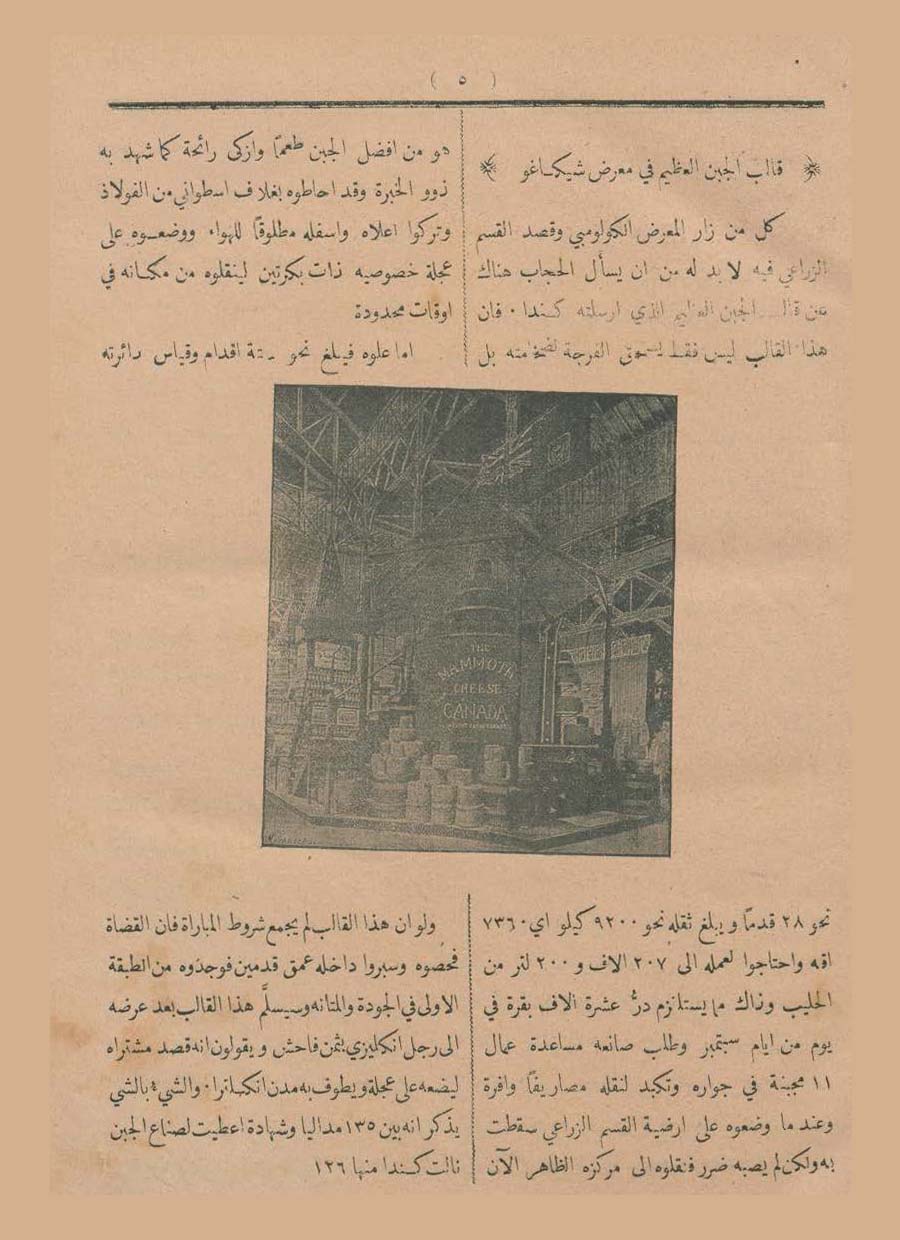 ( ٥ )
قالب الجبن العظيم في معرض شيكاغو
كل من زار المعرض الكولومبي وقصد القسم
الزراعي فيه لا بد له من ان يسأل الحجاب هناك
عن قالب الجبن العظيم الذي ارسلته كندا ٠ فان
هذا القالب ليس فقط يستحق الفرجة لضخامته بل
هو من افضل الجبن طعماً وازكى رائحة كما شهد به
ذوو الخبرة وقد احاطوه بغلاف اسطواني من الفولاذ
وتركوا اعلاه واسفله مطلوقاً للهواء ووضعوه على
عجلة خصوصيه ذات بكرتين لينقلوه من مكانه في
اوقات محدودة
اما علوه فيبلغ نحو ستة اقدام وقياس دائرته
THE
MAMMOTH
CHEESE
CANADA
نحو ٢٨ قدماً ويبلغ ثقله نحو ٩٢٠٠ كيلو اي ٧٣٦٠
اقه واحتاجوا لعمله الى ٢٠٧ الاف و ٢٠٠ لتر من
الحليب وذاك ما يستلزم درُّ عشرة الاف بقرة في
يوم من ايام سبتمبر وطلب صانعه مساعدة عمال
١١ مجبنة في جواره وتكبد لنقله مصاريفاً وافرة
وعند ما وضعوه على ارضية القسم الزراعي سقطت
به ولكن لم يصبه ضرر فنقلوه الى مركزه الظاهر الآن
ولو ان هذا القالب لم يجمع شروط المباراة فان القضاة
فحصوه وسبروا داخله عمق قدمين فوجدوه من الطبقة
الاولى في الجودة والمتانه وسيسلَّم هذا القالب بعد عرضه
الى رجل انكليزي بثمن فاحش ويقولون انه قصد مشتراه
ليضعه على عجلة ويطوف به مدن انكلترا ٠ والشيء بالشي
يذكر انه بين ١٣٥ مداليا وشهادة اعطيت لصناع الجبن
نالت كندا منها ١٢٦